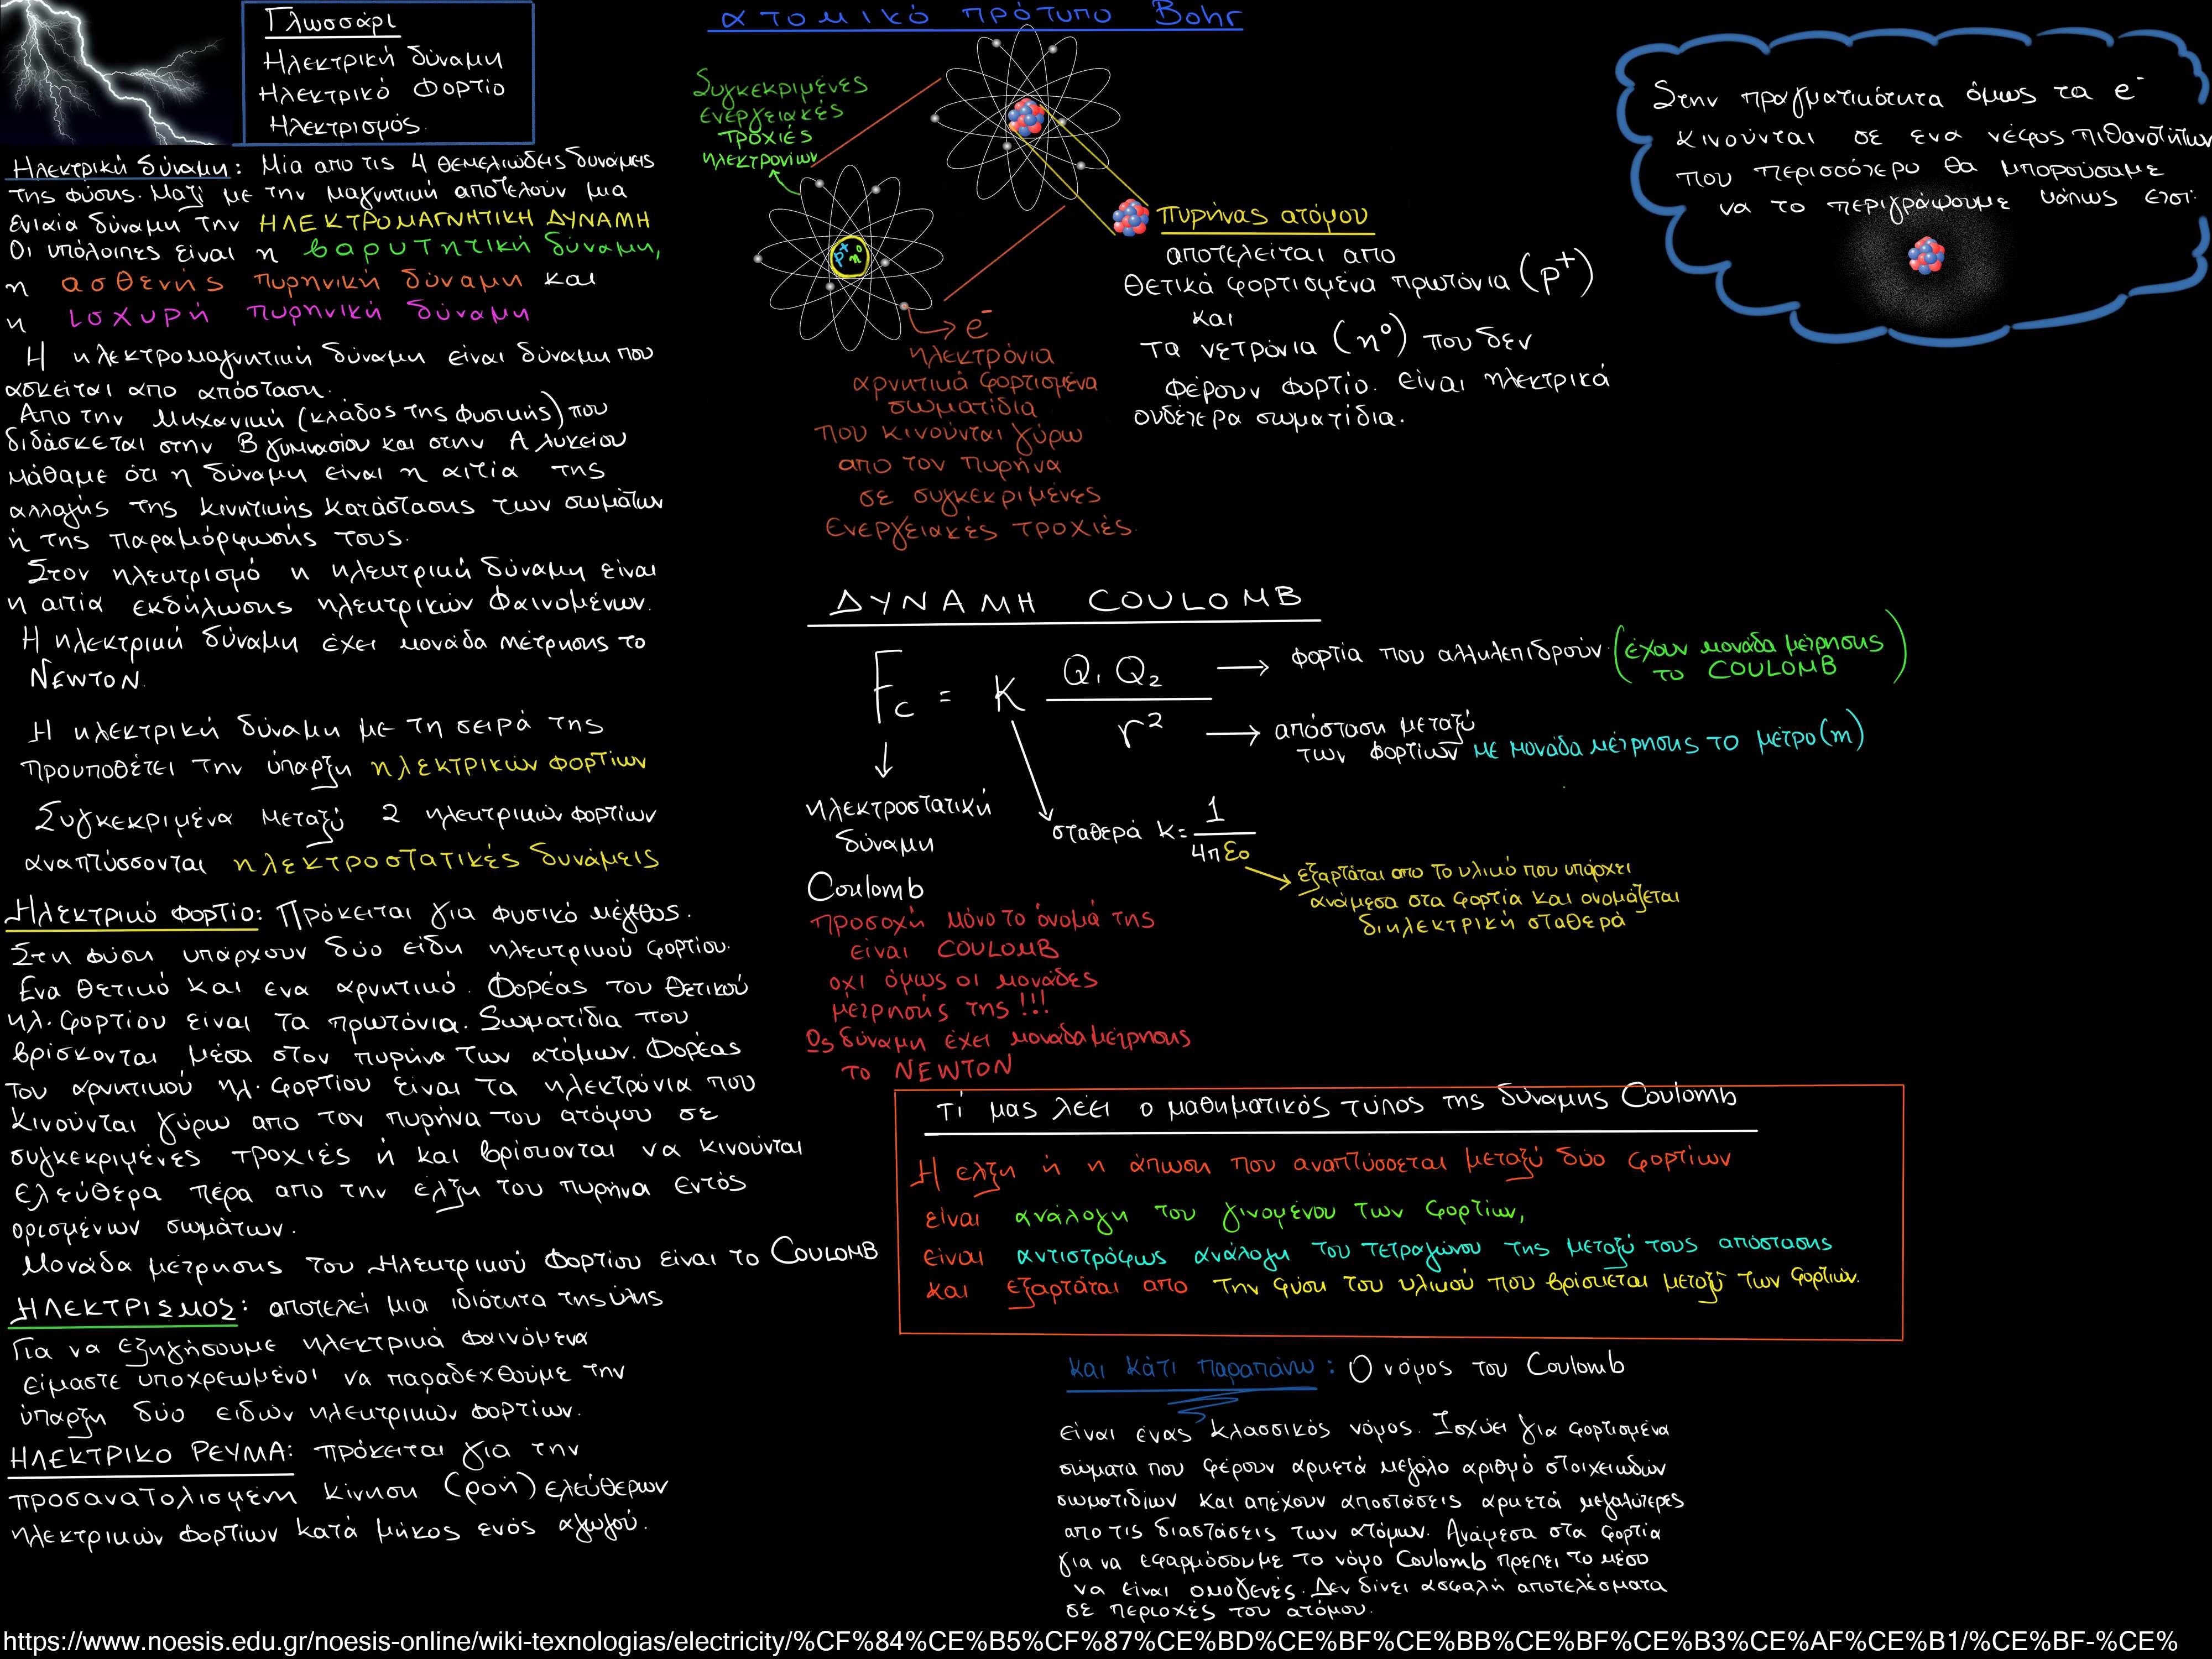 Γλωσσάρι
Ηλεκτρική δύναμη
Ηλεκτρικό Φορτίο
Ηλεκτρισμός.
Ηλεκτρική δύναμη: Μία απο τις 4 θεμελιώδεις δυνάμεις
της φύσης. Μαζί με την μαγνητική αποτελούν μια
ενιαία δύναμη την ΗΛΕΚΤΡΟΜΑΓΝΗΤΙΚΗ ΔΥΝΑΜΗ
Οι υπόλοιπες είναι η βαρυτητική δύναμη,
η ασθενής πυρηνική δύναμη και
η ισχυρή πυρηνική δύναμη
Η ηλεκτρομαγνητική δύναμη είναι δύναμη που
ασκείται απο απόσταση.
Απο την Μηχανική (κλάδος της φυσικής) που
διδάσκεται στην Β γυμνασίου και στην Α λυκείου
μάθαμε ότι η δύναμη είναι η αιτία της
αλλαγής της κινητικής κατάστασης των σωμάτων
ή της παραμόρφωσής τους.
Στον ηλεκτρισμό η ηλεκτρική δύναμη είναι
η αιτία εκδήλωσης ηλεκτρικών Φαινομένων.
Η ηλεκτρική δύναμη έχει μονάδα μέτρησης το
NEWTON.
Η ηλεκτρική δύναμη με τη σειρά της
προυποθέτει την ύπαρξη ηλεκτρικών φορτίων
Συγκεκριμένα μεταξύ 2 ηλεκτρικών φορτίων
αναπτύσσονται ηλεκτροστατικές δυνάμεις
Ηλεκτρικό φορτίο: Πρόκειται για φυσικό μέγεθος.
Στη φύση υπάρχουν δύο είδη ηλεκτρικού φορτίου.
Ένα θετικό και ενα αρνητικό. Φορέας του θετικού
ηλ. φορτίου είναι τα πρωτόνια. Σωματίδια που
βρίσκονται μέσα στον πυρήνα των ατόμων. Φορέας
του αρνητικού ηλ. φορτίου είναι τα ηλεκτρόνια που
κινούνται γύρω απο τον πυρήνα του ατόμου σε
συγκεκριμένες τροχιές ή και βρίσκονται να κινούνται
ελεύθερα πέρα απο την έλξη του πυρήνα εντός
ορισμένων σωμάτων.
Μονάδα μέτρησης του Ηλεκτρικού Φορτίου είναι το COULOMB
ΗΛΕΚΤΡΙΣΜΟΣ: αποτελεί μια ιδιότητα της ύλης
Για να εξηγήσουμε ηλεκτρικά φαινόμενα
είμαστε υποχρεωμένοι να παραδεχθούμε την
ύπαρξη δύο ειδών ηλεκτρικών φορτίων.
ΗΛΕΚΤΡΙΚΟ ΡΕΥΜΑ: πρόκειται για την
προσανατολισμένη κίνηση (ροή) ελεύθερων
ηλεκτρικών φορτίων κατά μήκος ενός αγωγού.
ατομικό πρότυπο Bohr
Συγκεκριμένες
ενεργειακές
τροχιές
ηλεκτρονίων
p+ n0
e-
ηλεκτρόνια
αρνητικά φορτισμένα
σωματίδια
που κινούνται γύρω
απο τον πυρήνα
σε συγκεκριμένες
ενεργειακές τροχιές.
πυρήνας ατόμου
αποτελείται απο
θετικά φορτισμένα πρωτόνια (p+)
και
τα νετρόνια (n0) που δεν
φέρουν φορτίο. είναι ηλεκτρικά
ουδέτερα σωματίδια.
Στην πραγματικότητα όμως τα e-
κινούνται σε ενα νέφος πιθανοτήτων
που περισσότερο θα μπορούσαμε
να το περιγράψουμε κάπως έτσι:
ΔΥΝΑΜΗ COULOMB
Fc = K Q1 Q2 / r2
φορτία που αλληλεπιδρούν (έχουν μονάδα μέτρησης
το COULOMB)
απόσταση μεταξύ
των φορτίων με μονάδα μέτρησης το μέτρο (m)
ηλεκτροστατική
δύναμη
Coulomb
σταθερά k = 1 / 4πεο
εξαρτάται απο το υλικό που υπάρχει
ανάμεσα στα φορτία και ονομάζεται
διηλεκτρική σταθερά
προσοχή μόνο το όνομά της
είναι COULOMB
οχι όμως οι μονάδες
μέτρησής της!!!
Ως δύναμη έχει μονάδα μέτρησης
το NEWTON
τί μας λέει ο μαθηματικός τύπος της δύναμης Coulomb
Η έλξη ή η άπωση που αναπτύσσεται μεταξύ δύο φορτίων
είναι ανάλογη του γινομένου των φορτίων,
είναι αντιστρόφως ανάλογη του τετραγώνου της μεταξύ τους απόστασης
και εξαρτάται απο την φύση του υλικού που βρίσκεται μεταξύ των φορτιών.
και κάτι παραπάνω: Ο νόμος του Coulomb
είναι ένας κλασσικός νόμος. Ισχύει για φορτισμένα
σώματα που φέρουν αρκετά μεγάλο αριθμό στοιχειωδών
σωματιδίων και απέχουν αποστάσεις αρκετά μεγαλύτερες
απο τις διαστάσεις των ατόμων. Ανάμεσα στα φορτία
για να εφαρμόσουμε το νόμο Coulomb πρέπει το μέσο
να είναι ομογενές. Δεν δίνει ασφαλή αποτελέσματα
σε περιοχές του ατόμου.
https://www.noesis.edu.gr/noesis-online/wiki-texnologias/electricity/%CF%84%CE%B5%CF%87%CE%BD%CE%BF%CE%BB%CE%BF%CE%B3%CE%AF%CE%B1/%CE%BF-%CE%